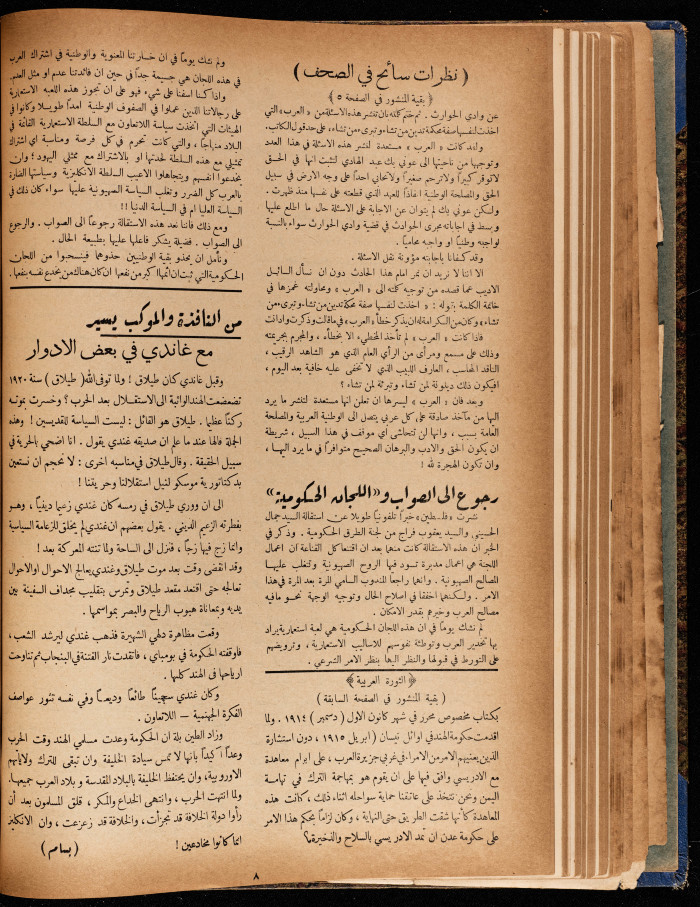 ( نظرات سائح في الصحف )
﴿ بقية المنشور في الصفحة ٥ ﴾
عن وادي الحوارث . ثم ختم كلته بان تنشر هذه الاسئلة من « العرب » التي
اخذت لنفسها صفة محكمة تدين من تشاء وتبرىء من تشاء ، على حد قول الكاتب.
ولقد كانت « العرب » مستعدة لنشر هذه الاسئلة في هذا العدد
وتوجيهها من ناحيتها الى عوني بك عبد الهادي لتثبت انها في الحق
لا توقر كبيراً ولا ترحم صغيراً ولا تحابي احداً على وجه الارض في سبيل
الحق والمصلحة الوطنية انفاذاً للعهد الذي قطعته على نفسها منذ ظهرت .
ولكن عوني بك لم يتوان عن الاجابة على الاسئلة حال ما اطلع عليها
وبسط في اجاباته مجرى الحوادث في قضية وادي الحوارث سواء بالنسبة
لواجبه وطنياً او واجبه محامياً .
وقد كفانا باجابته مؤونة نقل الاسئلة .
الا اننا لا نريد ان نمر امام هذا الحادث دون ان نسأل السائل
الاديب عما قصده من توجيه كلمته الى « العرب » ومحاولته غمزها في
خاتمة الكلمة بقوله : « اخذت لنفسها صفة محكمة تدين من تشاء وتبرىء من
تشاء » وكان من الكرامة له ان يذكر خطأ « العرب » في ما قالت وذكرت وادانت
فاذا كانت « العرب » لم تأخذ المخطىء الا بخطأه ، والمجرم بجريمته
وذلك على مسمع ومرأى من الرأي العام الذي هو الشاهد الرقيب ،
الناقد المحاسب ، العارف اللبيب الذي لا تخفى عليه خافية بعد اليوم ،
افيكون ذلك دينونة لمن تشاء وتبرئة لمن تشاء ؟
وبعد فان « العرب » ليسرها ان تعلن انها مستعدة لتنشر ما يرد
اليها من مآخذ صادقة على كل عربي يتصل الى الوطنية العربية والمصلحة
العامة بسبب ، وانها لن تتحاشى أي موقف في هذا السبيل ، شريطة
ان يكون الحق والادب والبرهان الصحيح متوافراً في ما يرد اليها ،
وان تكون الهجرة لله !
رجوع الى الصواب و«اللجان الحكومية»
نشرت « فلسطين » خبراً تلفونياً طويلا عن استقالة السيد جمال
الحسيني والسيد يعقوب فراج من لجنة الطرق الحكومية . وذكر في
الخبر ان هذه الاستقالة كانت منهما بعد ان اقتنعا كل القناعة ان اعمال
اللجنة هي اعمال مدبرة تسود فيها الروح الصهيونية وتغلب عليها
المصالح الصهيونية . وانهما راجعا المندوب السامي المرة بعد المرة في هذا
الامر . ولكنهما اخفقا في اصلاح الحال وتوجيه الوجهة نحو ما فيه
مصالح العرب وخيرهم بقدر الامكان .
لم نشك يوماً في ان هذه اللجان الحكومية هي لعبة استعمارية يراد
بها تخدير العرب وتوطئة نفوسهم للاساليب الاستعمارية ، وترويضهم
على التورط في قبولها والنظر اليها بنظر الامر الشرعي .
﴿ الثورة العربية ﴾
( بقية المنشور في الصفحة السابقة )
بكتاب مخصوص محرر في شهر كانون الاول ( دسمبر ) ١٩١٤ . ولما
اقدمت حكومة الهند في اوائل نيسان ( ابريل ١٩١٥ ، دون استشارة
الذين يعنيهم الامر من الامراء في غربي جزيرة العرب ، على ابرام معاهدة
مع الادريسي وافق فيها على ان يقوم هو بمهاجمة الترك في تهامة
اليمن ونحن نتخذ على عاتقنا حماية سواحله اثناء ذلك ، كانت هذه
المعاهدة كأنها شقت الطريق حتى النهاية ، وكان لزاماً بحكم هذا الامر
على حكومة عدن ان تمد الادريسي بالسلاح والذخيرة!؟
ولم نشك يوماً في ان خسارتنا المعنوية والوطنية في اشتراك العرب
في هذه اللجان هي جسيمة جداً في حين ان فائدتنا عدم او مثل العدم.
واذا كنا اسفنا على شيء فهو على ان تجوز هذه اللعبة الاستعمارية
على رجالاتنا الذين عملوا في الصفوف الوطنية امداً طويلا وكانوا في
الهيئات التي اتخذت سياسة اللاتعاون مع السلطة الاستعمارية القائمة في
البلاد منهاجاً ، والتي كانت تحرم في كل فرصة ومناسبة اي اشتراك
تمثيلي مع هذه السلطة لحدتها او بالاشتراك مع ممثلي اليهود ؛ وان
يخدعوا انفسهم ويتجاهلوا الاعيب السلطة الانكليزية وسياستها الضارة
بالعرب كل الضرر وتغلب السياسة الصهيونية عليها سواء كان ذلك في
السياسة العليا ام في السياسة الدنيا !!
ومع ذلك فاننا نعد هذه الاستقالة رجوعاً الى الصواب . والرجوع
الى الصواب . فضيلة يشكر فاعلها عليها بطبيعة الحال .
ونأمل ان يحذو بقية الوطنيين حذوهما فينسحبوا من اللجان
الحكومية التي ثبت ان اثمها اكبر من نفعها ان كان هناك من يخدع نفسه بنفعها .
من النافذة والموكب يسير
مع غاندي في بعض الادوار
وقبل غاندي كان طيلاق ! ولما توفى الله ( طيلاق ) سنة ١٩٢٠
تضعضعت الهند الواثبة الى الاستقلال بعد الحرب ؟ وخسرت بموته
ركناً عظيما . طيلاق هو القائل : ليست السياسة للقديسين ! وهذه
الجملة قالها عند ما علم ان صديقه غندي يقول . انا اضحي بالحرية في
سبيل الحقيقة . وقال طيلاق في مناسبه اخرى : لا نحجم ان نستعين
بدكتاتورية موسكو لنيل استقلالنا وحريتنا !
الى ان ووري طيلاق في رمسه كان غندي زعيما دينياً ، وهو
بفطرته الزعيم الديني . يقول بعضهم ان غندي لم يخلق للزعامة السياسية
وانما زج فيها زجاً ، فنزل الى الساحة ولما تنته المعركة بعد !
وقد انقضى وقت بعد موت طيلاق وغندي يعالج الاحوال والاحوال
تعالجه حتى اقتعد مقعد طيلاق وتمرس بتقليب مجداف السفينة بين
يديه وبمعاناة هبوب الرياح والبصر بمواسمها .
وقمت مظاهرة دلهي الشهيرة فذهب غندي ليرشد الشعب ،
فاوقفته الحكومة في بومباي ، فاتقدت نار الفتنة في البنجاب ثم تناوحت
ارياحها في الهند كلها .
وكان غندي سجيناً طائعاً وديعاً وفي نفسه تثور عواصف
الفكرة الجهنمية – اللاتعاون .
وزاد الطين بلة ان الحكومة وعدت مسلمي الهند وقت الحرب
وعداً اكيداً بانها لا تمس سيادة الخليفة وان تبقى الترك ولاياتهم
الاوروبية ، وان يحتفظ الخليفة بالبلاد المقدسة وبلاد العرب جميعها .
ولما انتهت الحرب ، وانتهى الخداع والمكر ، قلق المسلمون بعد أن
رأوا دولة الخلافة قد تجزأت ، والخلافة قد زعزعت ، وان الانكليز
انما كانوا مخادعين !
( بسام )
٨